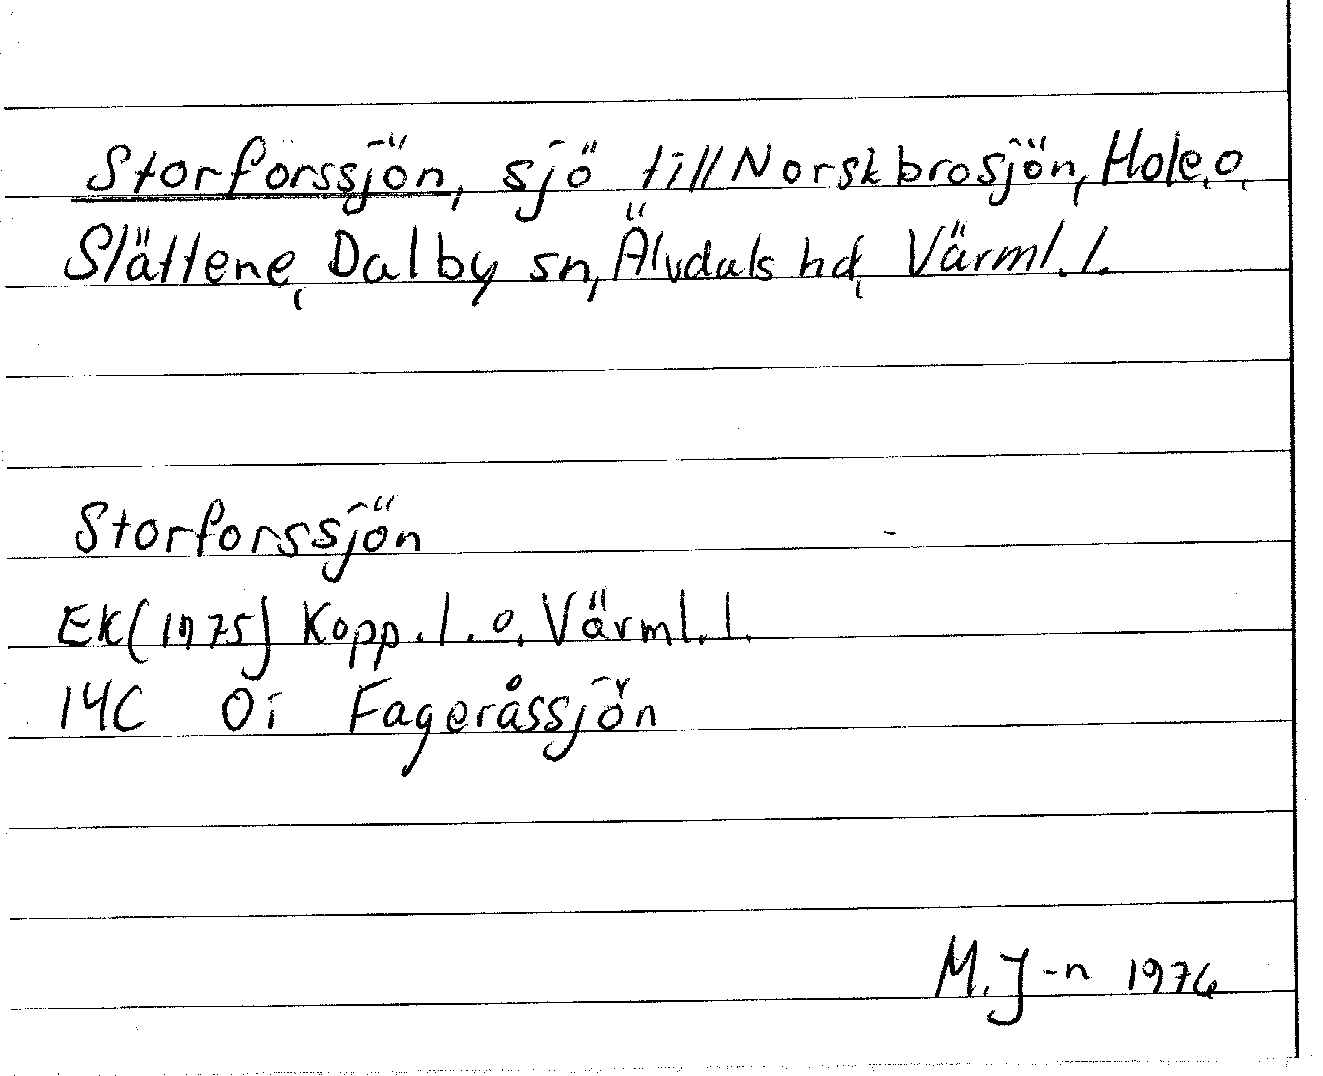 Storforssjön, sjö till Norskbrosjön, Hole, o.
Slättene, Dalby sn, Älvdals hd, Värml. l.
Storforssjön
EK(1975) Kopp. l. o. Värml. l.
14C 0i Fageråssjön
M. J-n 1976